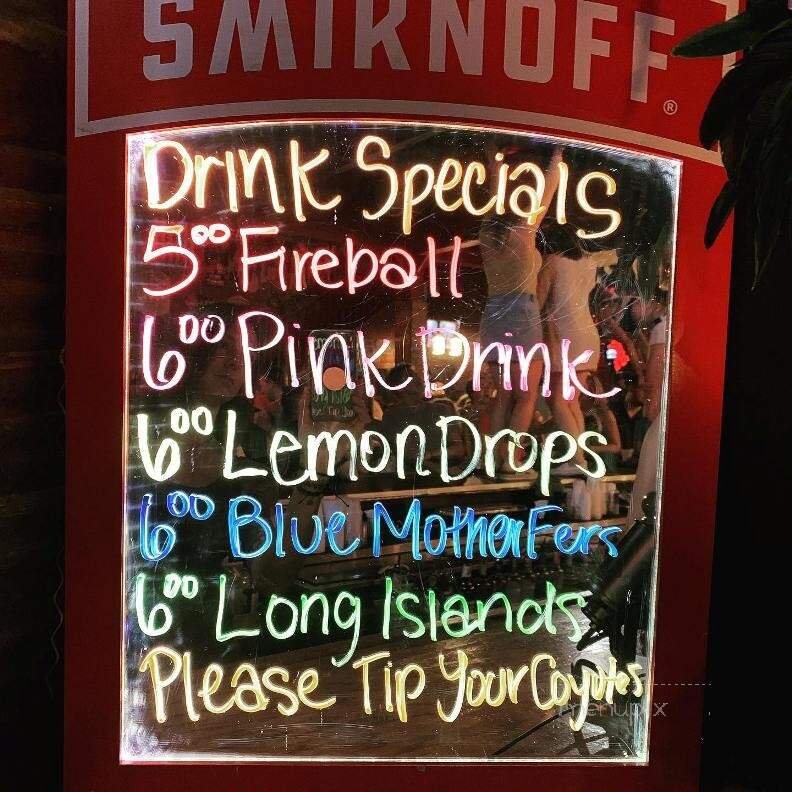 SMIRNOFF®
Drink Specials
5⁰⁰ Fireball
6⁰⁰ Pink Drink
6⁰⁰ Lemon Drops
6⁰⁰ Blue MotherFers
6⁰⁰ Long Islands
Please Tip Your Coyotes
menupix